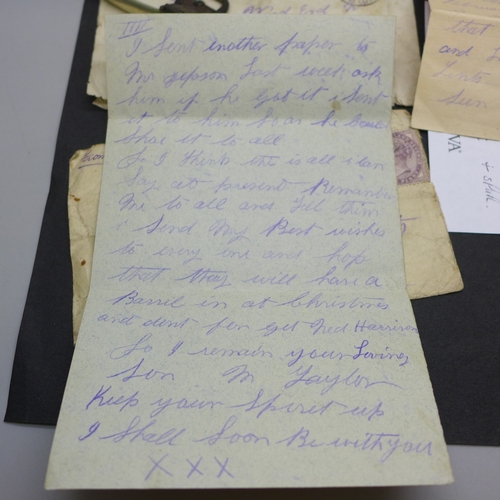 III
I Sent another paper to
Mr Jepson Last week ask
him if he Got it i Sent
it to him So as he Could
Shoe it to all
So I think this is all i can
Say at present Remember
Me to all and tell them
i Send My Best wishes
to every one and hop
that they will have a
Barrel in at Christmes
and dont for get Ned Harrison
So I remain your Loving
Son M Taylor
Keep your Spirit up
I Shall Soon Be with you
X X X
that
and